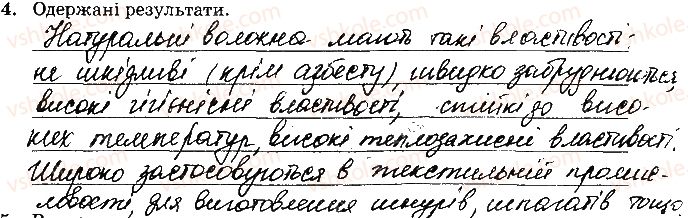 4. Одержані результати.
Натуральні волокна мають такі властивості:
не шкідливі (крім азбесту) швидко забруднюються,
високі гігієнісні властивості, стійкі до висо-
ких температур, високі теплозахисні властивості.
Широко застосовуються в текстильній промис-
ловості, для виготовлення шнурів, шпагатів тощо